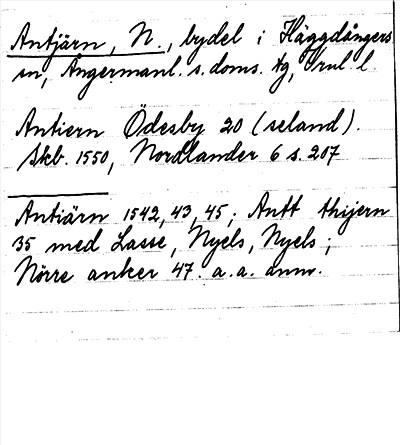 Antjärn, N., bydel i Häggdångers
sn, Ångermanl. s. doms. tg, Vrnl. l.
Antiern Ödesby 20 (seland).
Skb. 1550, Nordlander 6 s. 207
Antiärn 1542, 43, 45; Antt thijern
35 med Lasse, Nyels, Nyels;
Nörre anker 47. a.a. anm.